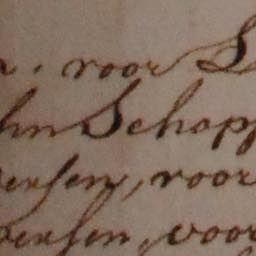 voor S
hn Schopp
ersen, voor
ersen, voor